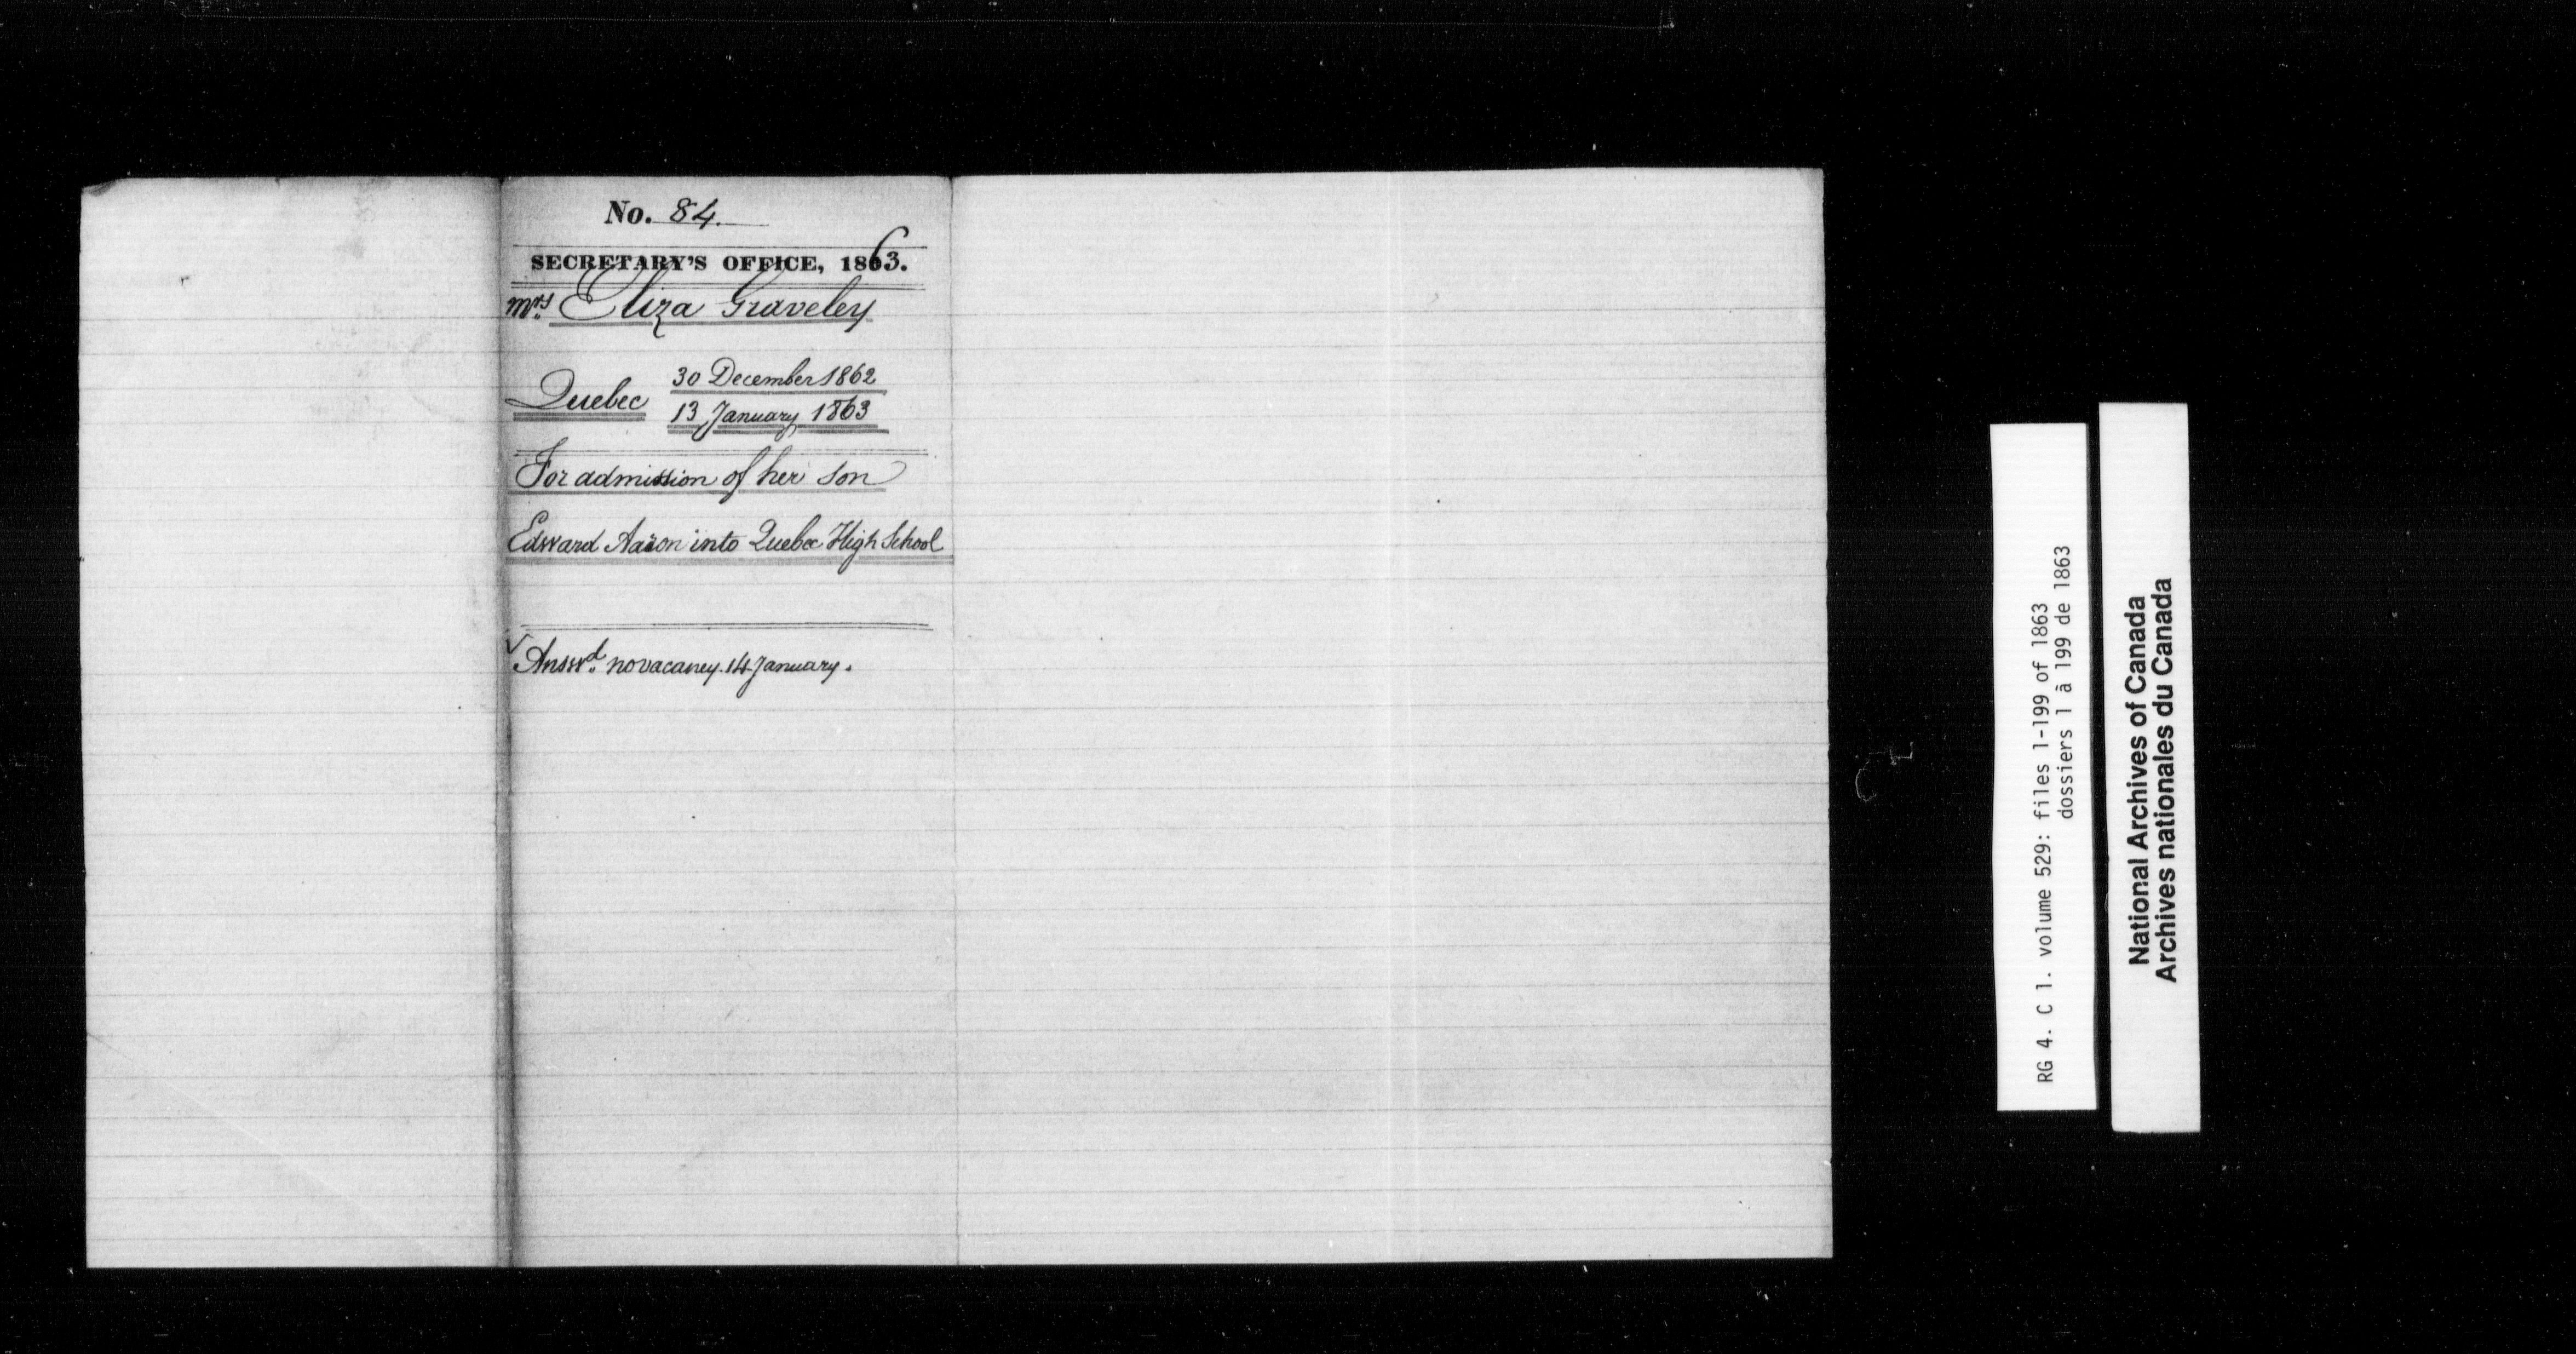 No. 84.
SECRETARY'S OFFICE, 1863.
Mrs. Eliza Graveley
Quebec
30 December 1862
13 January 1863
For admission of her son
Edward Aaron into Quebec High School
√ Answd. no vacancy. 14 January.
RG 4. C 1. volume 529: files 1-199 of 1863
dossiers 1 à 199 de 1863
National Archives of Canada
Archives nationales du Canada